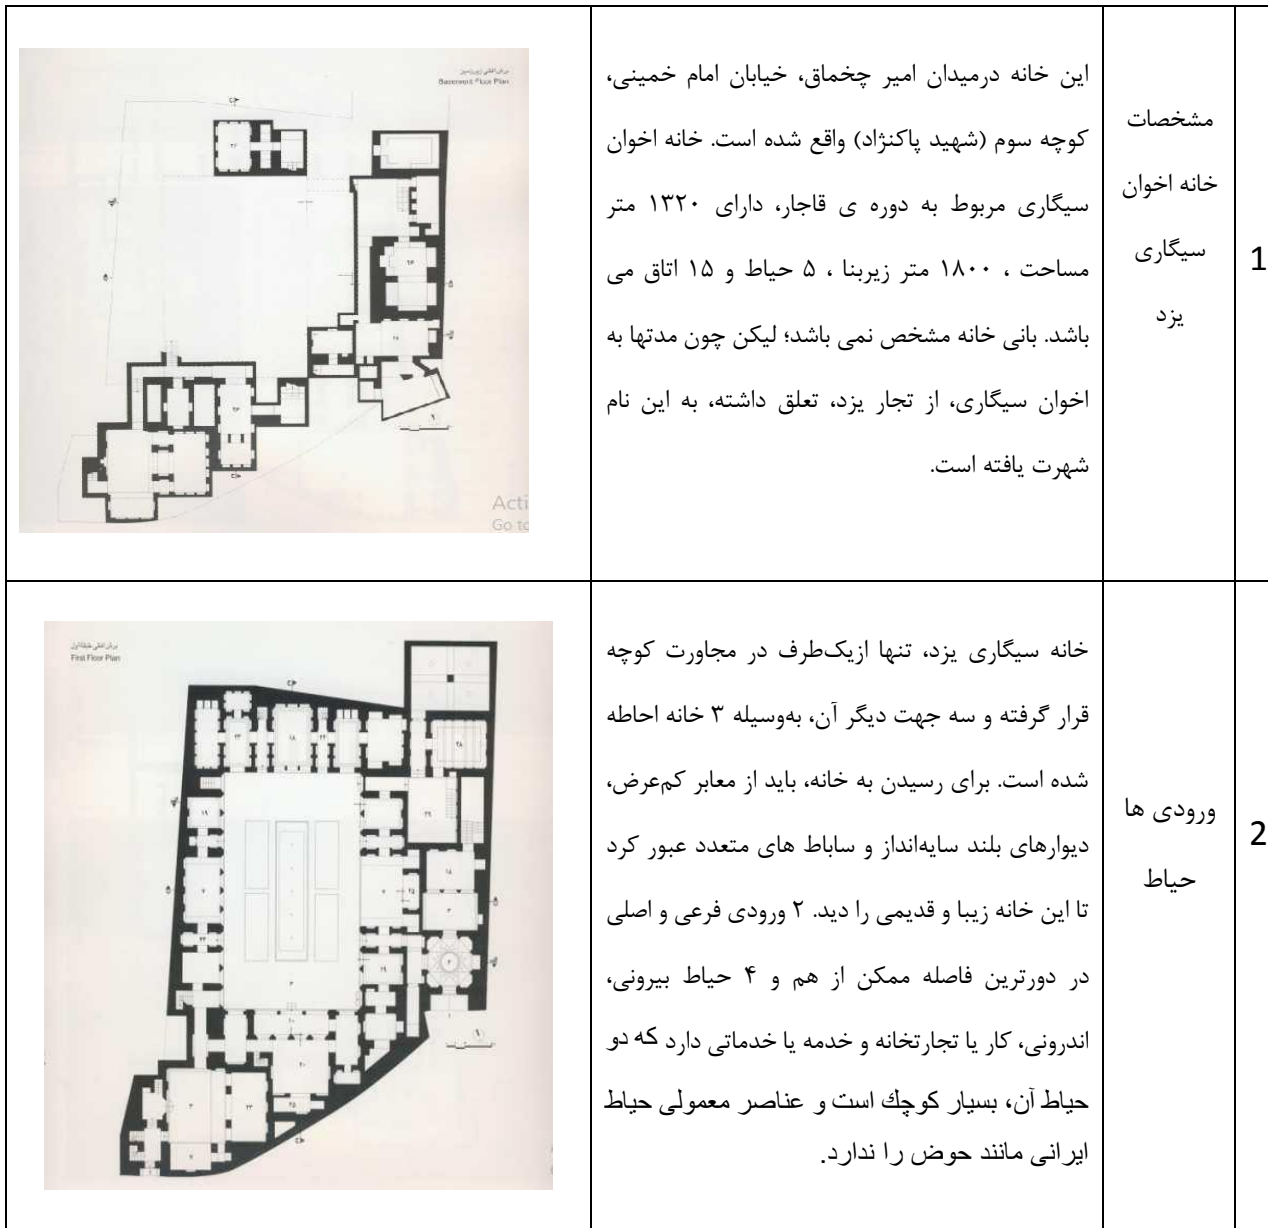 1
مشخصات
خانه اخوان
سیگاری
یزد
این خانه درمیدان امیر چخماق، خیابان امام خمینی،
کوچه سوم (شهید پاکنژاد) واقع شده است. خانه اخوان
سیگاری مربوط به دوره ی قاجار، دارای ۱۳۲۰ متر
مساحت ، ۱۸۰۰ متر زیربنا ، ۵ حیاط و ۱۵ اتاق می
باشد. بانی خانه مشخص نمی باشد؛ لیکن چون مدتها به
اخوان سیگاری، از تجار یزد، تعلق داشته، به این نام
شهرت یافته است.
برش افقی زیرزمین
Basement Floor Plan
Acti
Go to
2
ورودی ها
حیاط
خانه سیگاری یزد، تنها ازیک‌طرف در مجاورت کوچه
قرار گرفته و سه جهت دیگر آن، به‌وسیله ۳ خانه احاطه
شده است. برای رسیدن به خانه، باید از معابر کم‌عرض،
دیوارهای بلند سایه‌انداز و ساباط های متعدد عبور کرد
تا این خانه زیبا و قدیمی را دید. ۲ ورودی فرعی و اصلی
در دورترین فاصله ممکن از هم و ۴ حیاط بیرونی،
اندرونی، کار یا تجارتخانه و خدمه یا خدماتی دارد که دو
حیاط آن، بسیار كوچك است و عناصر معمولی حیاط
ایرانی مانند حوض را ندارد.
برش افقی طبقه اول
First Floor Plan